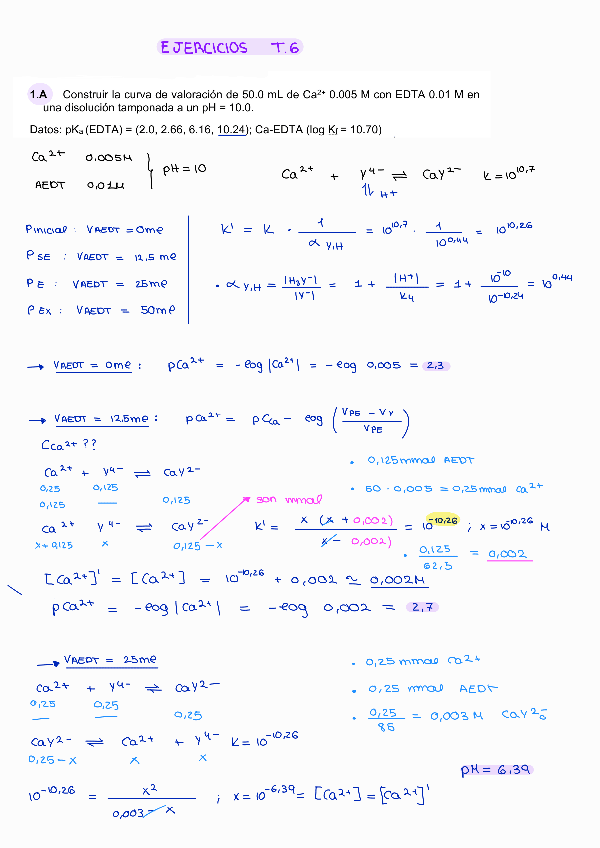 EJERCICIOS T.6
1.A Construir la curva de valoración de 50.0 mL de Ca²⁺ 0.005 M con EDTA 0.01 M en
una disolución tamponada a un pH = 10.0.
Datos: pKₐ (EDTA) = (2.0, 2.66, 6.16, 10.24); Ca-EDTA (log Kf = 10.70)
Ca²⁺ 0,005M
AEDT 0,01M
pH = 10
Ca²⁺ + Y⁴⁻ ⇌ CaY²⁻ K = 10^10,7
⇅ H+
Pinicial : VAEDT = 0ml
PSE : VAEDT = 12,5 ml
PE : VAEDT = 25ml
PEX : VAEDT = 50ml
K' = K · 1/αY,H = 10^10,7 · 1/10^0,44 = 10^10,26
· αY,H = |H₃Y⁻|/|Y⁻| = 1 + |H⁺|/K4 = 1 + 10^-10/10^-10,24 = 10^0,44
→ VAEDT = 0ml : pCa²⁺ = -log|Ca²⁺| = -log 0,005 = 2,3
→ VAEDT = 12,5ml : pCa²⁺ = pCCa - log (VPE - VY / VPE)
CCa²⁺ ??
· 0,125 mmol AEDT
Ca²⁺ + Y⁴⁻ ⇌ CaY²⁻
· 50 · 0,005 = 0,25 mmol Ca²⁺
0,25 0,125
0,125 — 0,125
→ son mmol
Ca²⁺ Y⁴⁻ ⇌ CaY²⁻ K' = x (x + 0,002) / x - 0,002) = 10^-10,26 ; x = 10^-10,26 M
x + 0,125 x 0,125 - x
· 0,125/62,5 = 0,002
[Ca²⁺]' = [Ca²⁺] = 10^-10,26 + 0,002 ≃ 0,002M
pCa²⁺ = -log|Ca²⁺| = -log 0,002 = 2,7
→ VAEDT = 25ml
· 0,25 mmol Ca²⁺
Ca²⁺ + Y⁴⁻ ⇌ CaY²⁻
· 0,25 mmol AEDT
0,25 0,25
— — 0,25
· 0,25/85 = 0,003 M CaY²⁻
CaY²⁻ ⇌ Ca²⁺ + Y⁴⁻ K = 10^-10,26
0,25 - x x x
pH = 6,39
10^-10,26 = x²/0,003 - x ; x = 10^-6,39 = [Ca²⁺] = [Ca²⁺]'